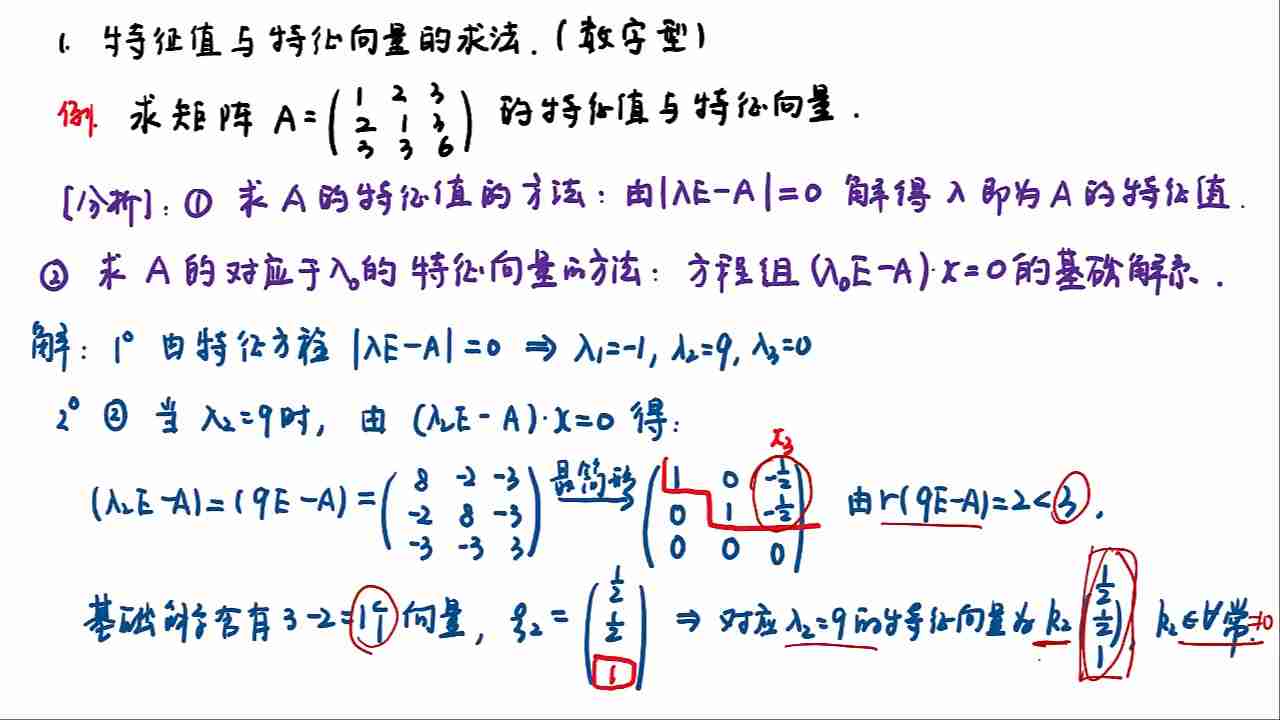 1. 特征值与特征向量的求法.(数字型)
例. 求矩阵 A=(1 2 3; 2 1 3; 3 3 6) 的特征值与特征向量.
[分析]: ① 求 A 的特征值的方法: 由|λE-A|=0 解得 λ 即为 A 的特征值.
② 求 A 的对应于λ₀的特征向量的方法: 方程组 (λ₀E-A)·x=0 的基础解系.
解: 1° 由特征方程 |λE-A|=0 ⇒ λ₁=-1, λ₂=9, λ₃=0
2° ② 当 λ₂=9时, 由 (λ₂E-A)·x=0 得:
x₃
(λ₂E-A)=(9E-A)=(8 -2 -3; -2 8 -3; -3 -3 3) 最简形 (1 0 -1/2; 0 1 -1/2; 0 0 0) 由r(9E-A)=2<3.
基础解系含有 3-2=1个向量, ξ₂=(1/2; 1/2; 1) ⇒ 对应λ₂=9的特征向量为 k₂(1/2; 1/2; 1) k₂∈∀常≠0